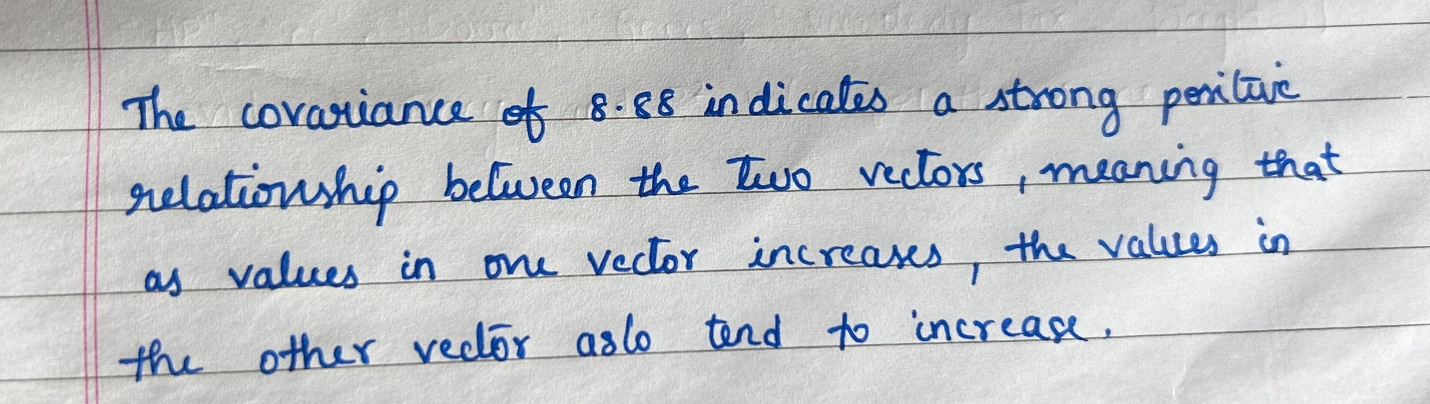 The covariance of 8.88 indicates a strong positive
relationship between the two vectors, meaning that
as values in one vector increases, the values in
the other vector aslo tend to increase.